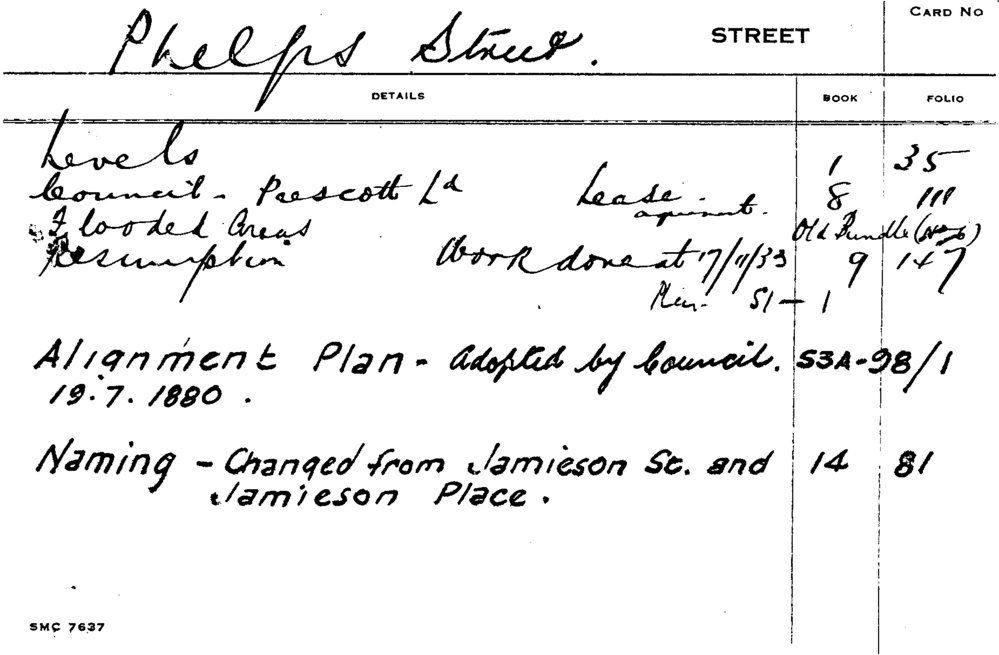 CARD NO
Phelps Street. STREET
DETAILS BOOK FOLIO
Levels 1 35
Council - Prescott Ld Lease - 8 111
Flooded Areas Old Bundle
Resumption Work done at 17/11/33 9 147
S1 - 1
Alignment Plan - Adopted by Council. S3A-98/1
19.7.1880.
Naming - Changed from Jamieson St. and 14 81
Jamieson Place.
SMC 7637